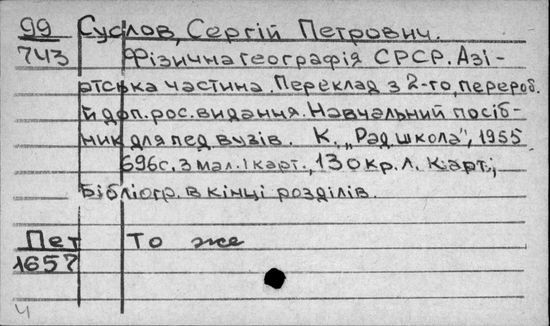 99 Суслов, Сергій Петрович.
743 Фізична географія СРСР. Азі-
атська частина. Переклад з 2-го, перероб.
й доп. рос. видання. Навчальний посіб-
ник для пед. вузів. К., „Рад. школа", 1955
696с. з мал. і карт., 13 окр. л. карт.;
Бібліогр. в кінці розділів.
Пет То же
1657
Ч